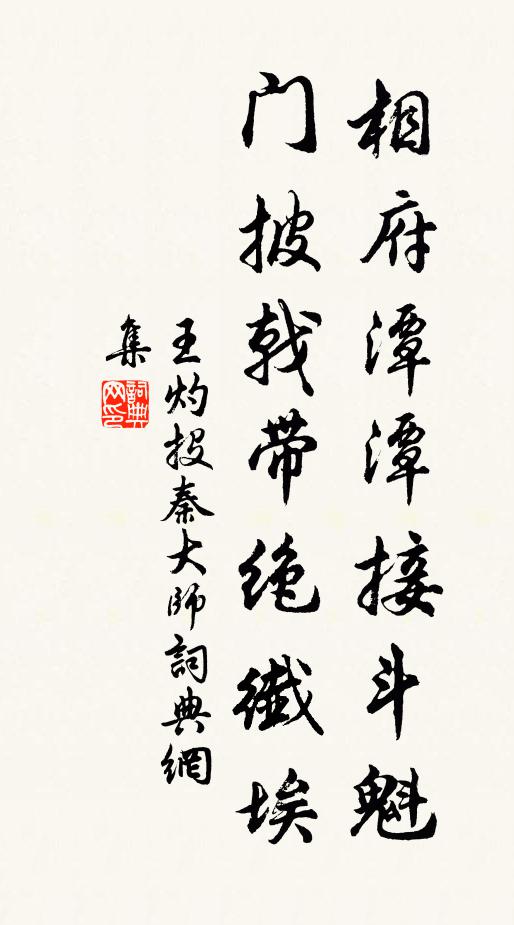 相府潭潭接斗魁
门披戟带绝纎埃
王灼投秦大师詞典網
集
詞典网印